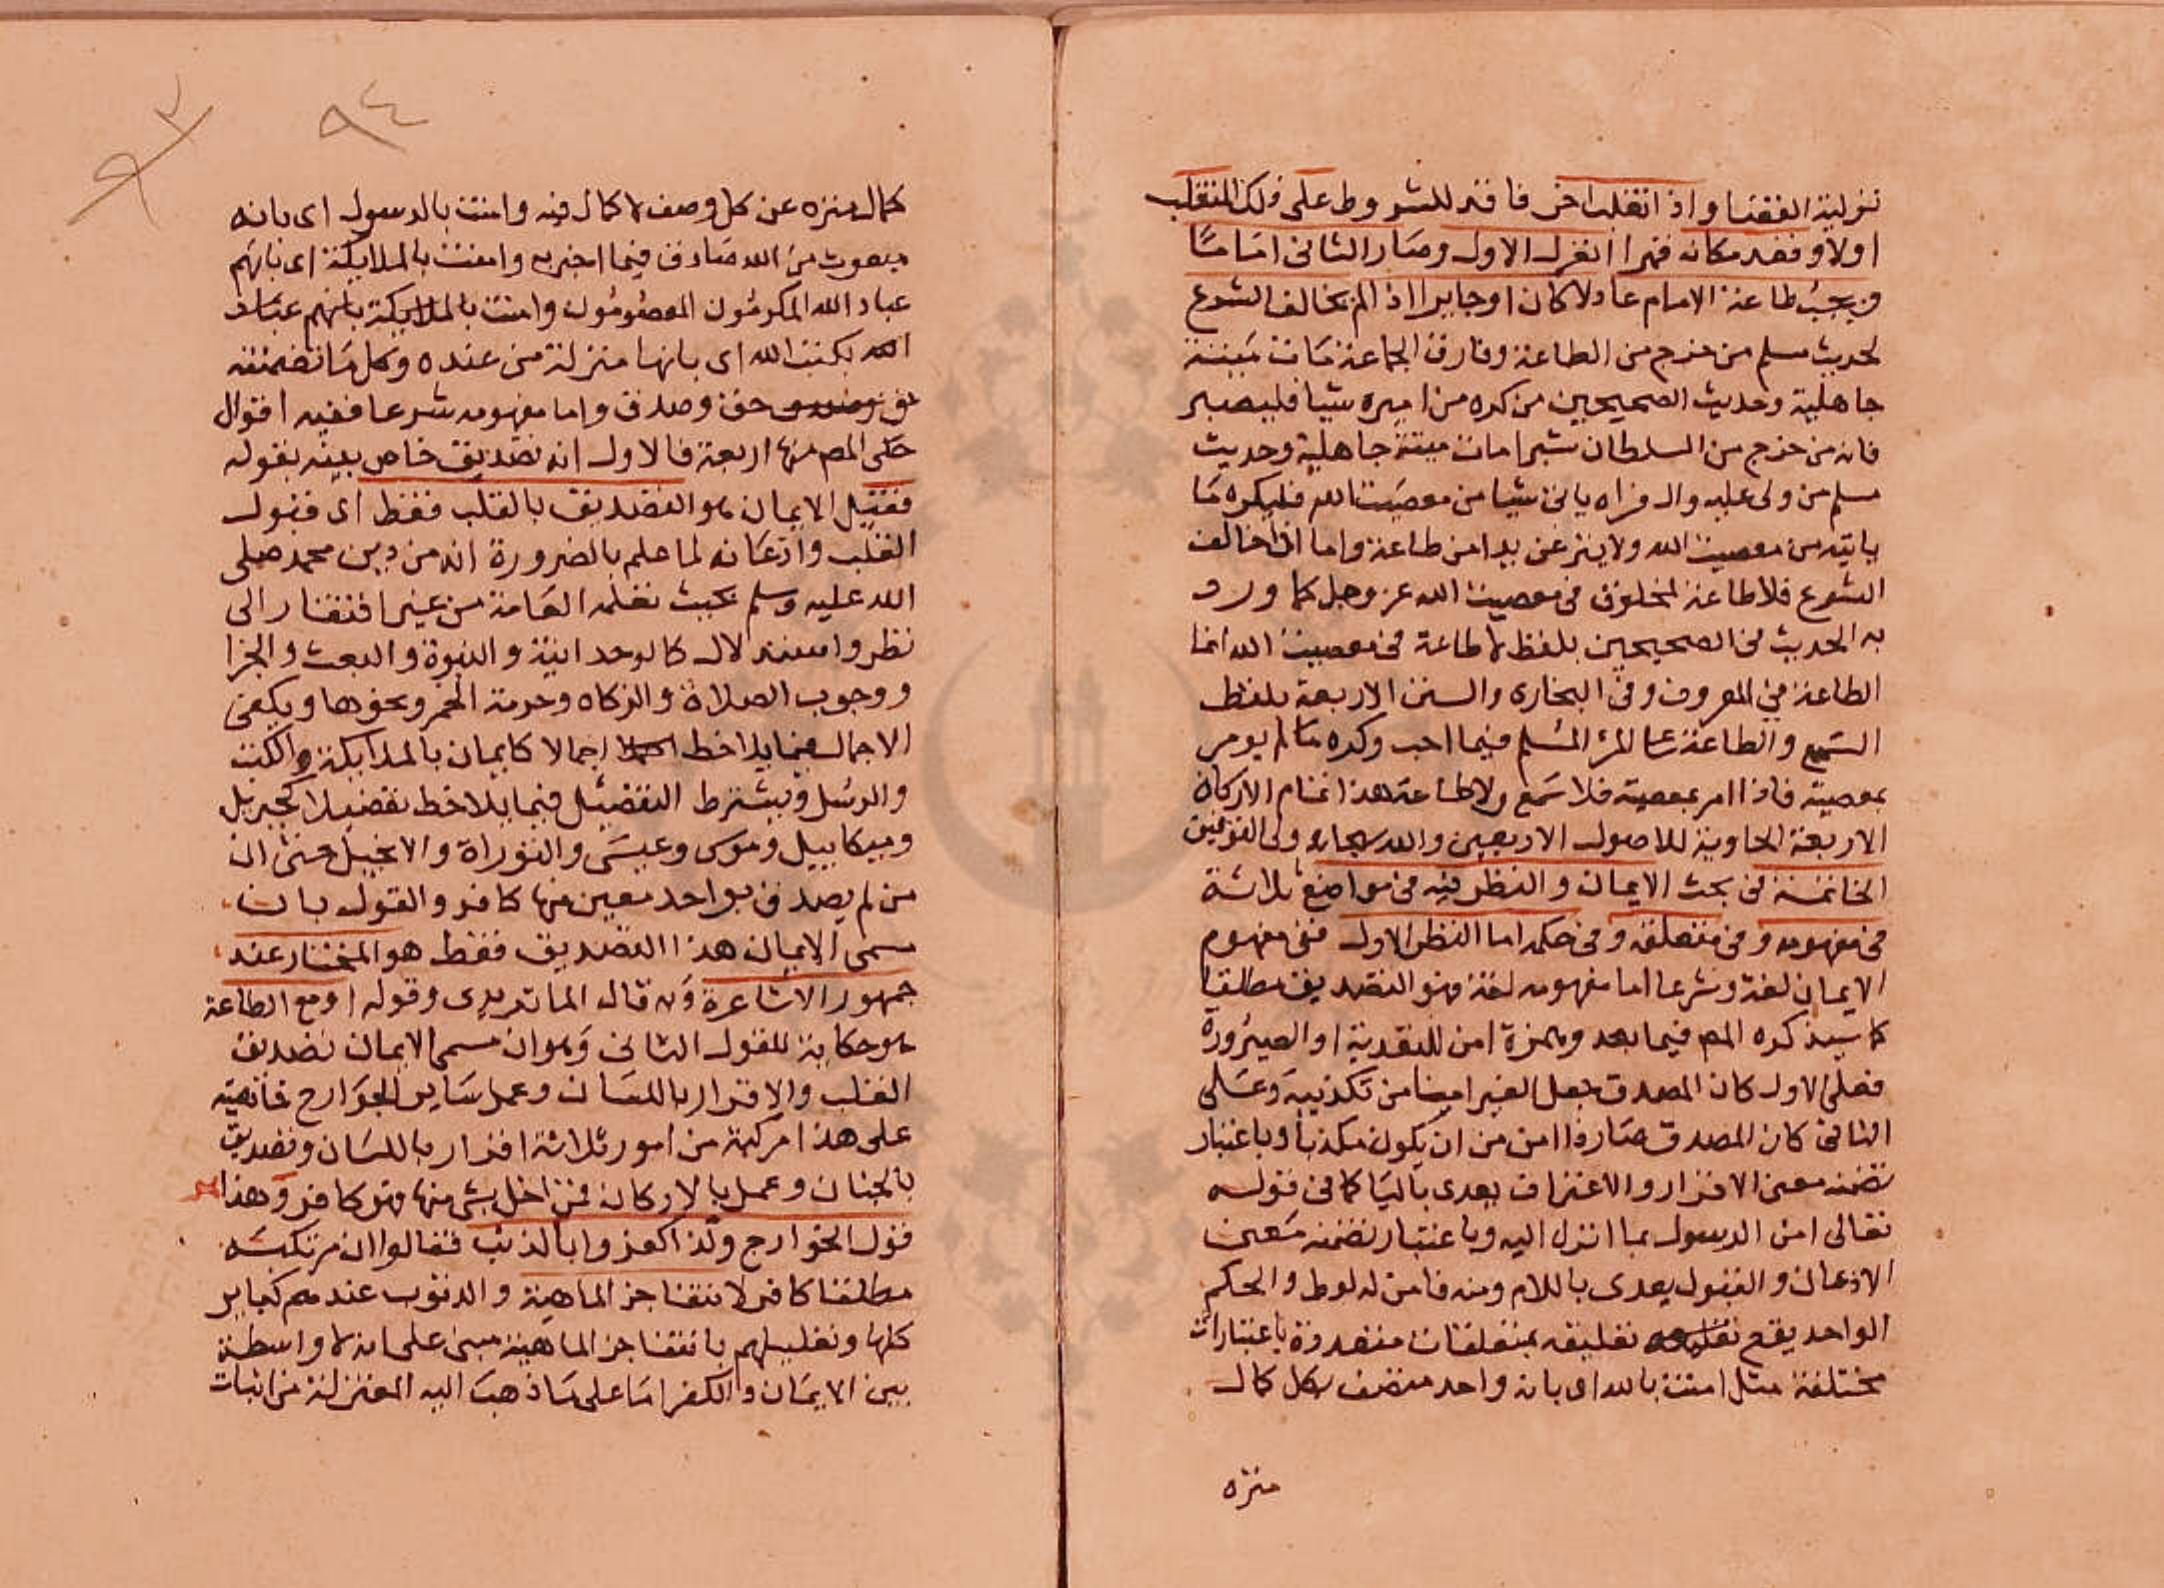 تولية القضا واذا تغلب اخر فاقد للشروط على ذلك المتغلب
اولا وقعد مكانه قهرا انعزل الاول وصار الثانى اماما
ويجب طاعة الامام عادلا كان او جايرا اذا لم يخالف الشرع
لحديث مسلم من خرج من الطاعة وفارق الجماعة مات ميتة
جاهلية وحديث الصحيحين من كره من اميره شيا فليصبر
فانه من خرج من السلطان شبرا مات ميتة جاهلية وحديث
مسلم من ولى عليه وال فراه ياتى شيا من معصية الله فليكره ما
ياتيه من معصية الله ولا ينزعن يدا من طاعة واما اذا خالف
الشرع فلا طاعة لمخلوق فى معصية الله عز وجل كما ورد
به الحديث فى الصحيحين بلفظ لا طاعة فى معصية الله انما
الطاعة فى المعروف وفى البخارى والسنن الاربعة بلفظ
السمع والطاعة على المرء المسلم فيما احب وكره ما لم يومر
بمعصية فاذا امر بمعصية فلا سمع ولا طاعة هذا تمام الاركان
الاربعة الحاوية للاصول الاربعين والله سبحانه ولى التوفيق
الخاتمة فى بحث الايمان والنظر فيه فى مواضع ثلاثة
فى مفهومه وفى متعلقه وفى حكمه اما النظر الاول ففى مفهوم
الايمان لغة وشرعا اما مفهومه لغة فهو التصديق مطلقا
كما سيذكره المص فيما بعد وهمزة امن للتعدية او الصيرورة
فعلى الاول كان المصدق جعل الغير امنا من تكذيبه وعلى
الثانى كان المصدق صار ذا امن من ان يكون مكذبا وباعتبار
تضمنه معنى الاقرار والاعتراف يعدى باليا كما فى قوله
تعالى امن الرسول بما انزل اليه وباعتبار تضمنه معنى
الاذعان والقبول يعدى باللام ومنه فامن له لوط والحكم
الواحد يقع تعليقه بمتعلقات متعددة باعتبارات
مختلفة مثل امنت بالله اى بانه واحد متصف بكل كمال
منزه
٩٤
كمال منزه عن كل وصف لا كمال فيه وامنت بالرسول اى بانه
مبعوث من الله صادق فيما اخبر به وامنت بالملايكة اى بانهم
عباد الله المكرمون المعصومون وامنت بالملايكة بانهم عباد
الله بكتب الله اى بانها منزلة من عنده وكل ما تضمنته
حق وصدق واما مفهومه شرعا ففيه اقوال
حكى المص منها اربعة فالاول انه تصديق خاص بينه بقوله
فقيل الايمان هو التصديق بالقلب فقط اى قبول
القلب واذعانه لما علم بالضرورة انه من دين محمد صلى
الله عليه وسلم بحيث تعلمه العامة من غير افتقار الى
نظر واستدلال كالوحدانية والنبوة والبعث والجزا
ووجوب الصلاة والزكاه وحرمة الخمر ونحوها ويكفى
الاجمال فيما يلاحظ اجمالا كايمان بالملايكة والكتب
والرسل ويشترط التفصيل فيما يلاحظ تفصيلا كجبريل
وميكاييل وموسى وعيسى والتوراة والانجيل حتى ان
من لم يصدق بواحد معين منها كافر والقول بان
مسمى الايمان هذا التصديق فقط هو المختار عند
جمهور الاشاعرة وبه قال الماتريدى وقوله او مع الطاعة
هو حكاية للقول الثانى وهو ان مسمى الايمان تصديق
القلب والاقرار باللسان وعمل ساير الجوارح فماهيته
على هذا مركبة من امور ثلاثة اقرار باللسان وتصديق
بالجنان وعمل بالاركان فمن اخل بشى منها فهو كافر وهذا هو
قول الخوارج ولذا كفروا بالذنب فقالوا ان مرتكبه
مطلقا كافر لانتفا جز الماهية والذنوب عندهم كباير
كلها وتعليلهم بانتفا جز الماهية مبنى على انه لا واسطة
بين الايمان والكفر اما على ما ذهب اليه المعتزلة من اثبات